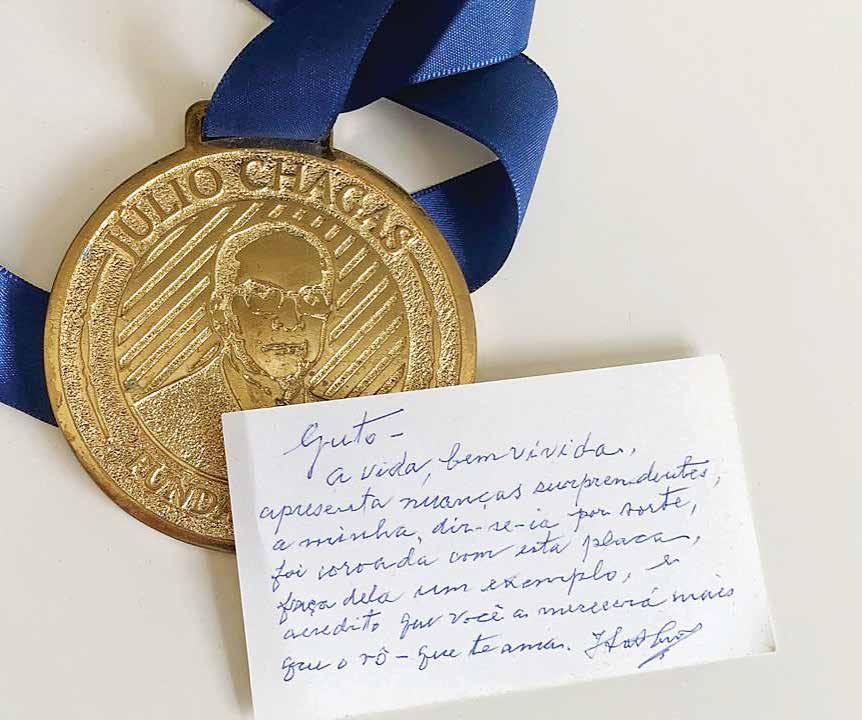 JULIO CHAGAS
FUNDA
Guto -
a vida, bem vivida,
apresenta nuanças surpreendentes,
a minha, dir-se-ia por sorte,
foi coroada com esta placa,
faça dela um exemplo, e
acredito que você a merecerá mais
que o vô - que te ama.